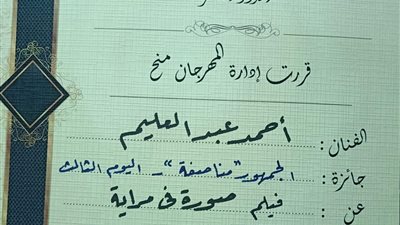 قررت إدارة المهرجان منح
الفنان : أحمد عبد العليم
جائزة : الجمهور "مناصفة" - اليوم الثالث
عن : فيلم صورة فى مراية